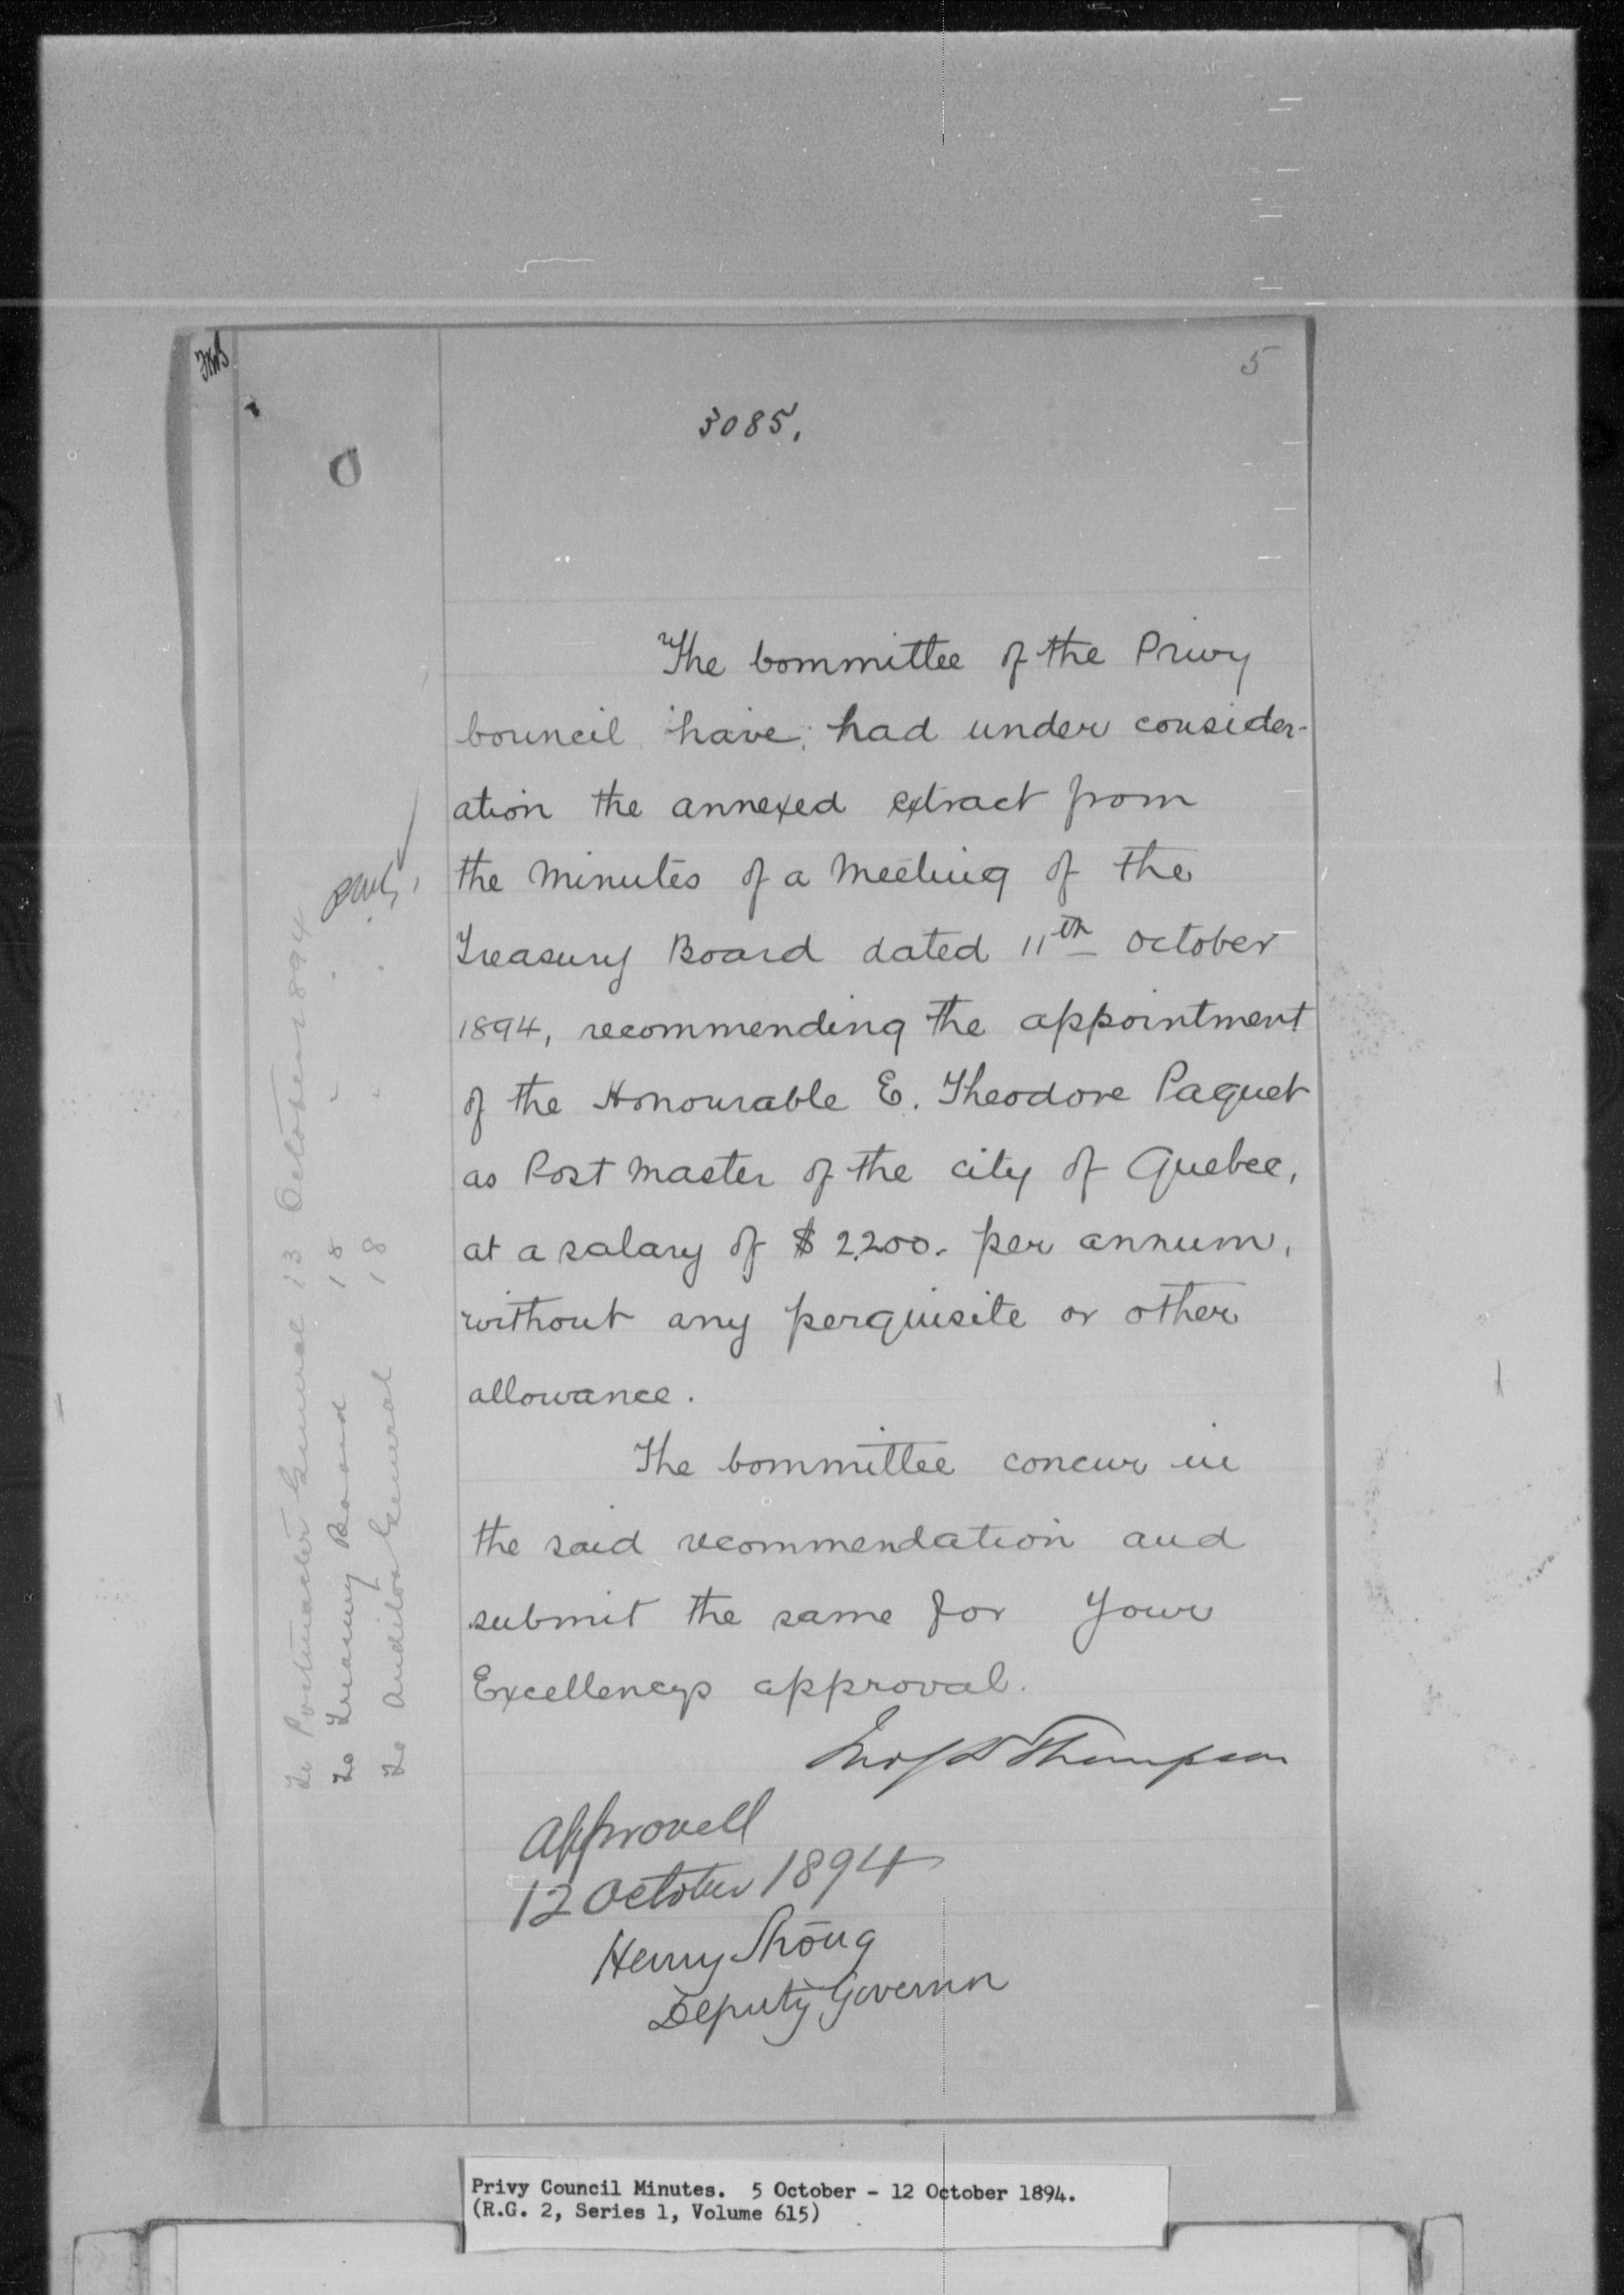 5
3085.
The Committee of the Privy
Council have had under consider-
ation the annexed extract from
the Minutes of a Meeting of the
Treasury Board dated 11th October
1894, recommending the appointment
of the Honourable E. Theodore Paquet
as Post Master of the City of Quebec,
at a salary of $2,200.- per annum,
without any perquisite or other
allowance.
The Committee concur in
the said recommendation and
submit the same for Your
Excellencys approval.
Jno S D Thompson
Approved
12 October 1894
Henry Strong
Deputy Governor
To Postmaster General 13 October 1894
To Treasury Board 18 " "
To Auditor General 18 " "
Privy Council Minutes. 5 October - 12 October 1894.
(R.G. 2, Series 1, Volume 615)